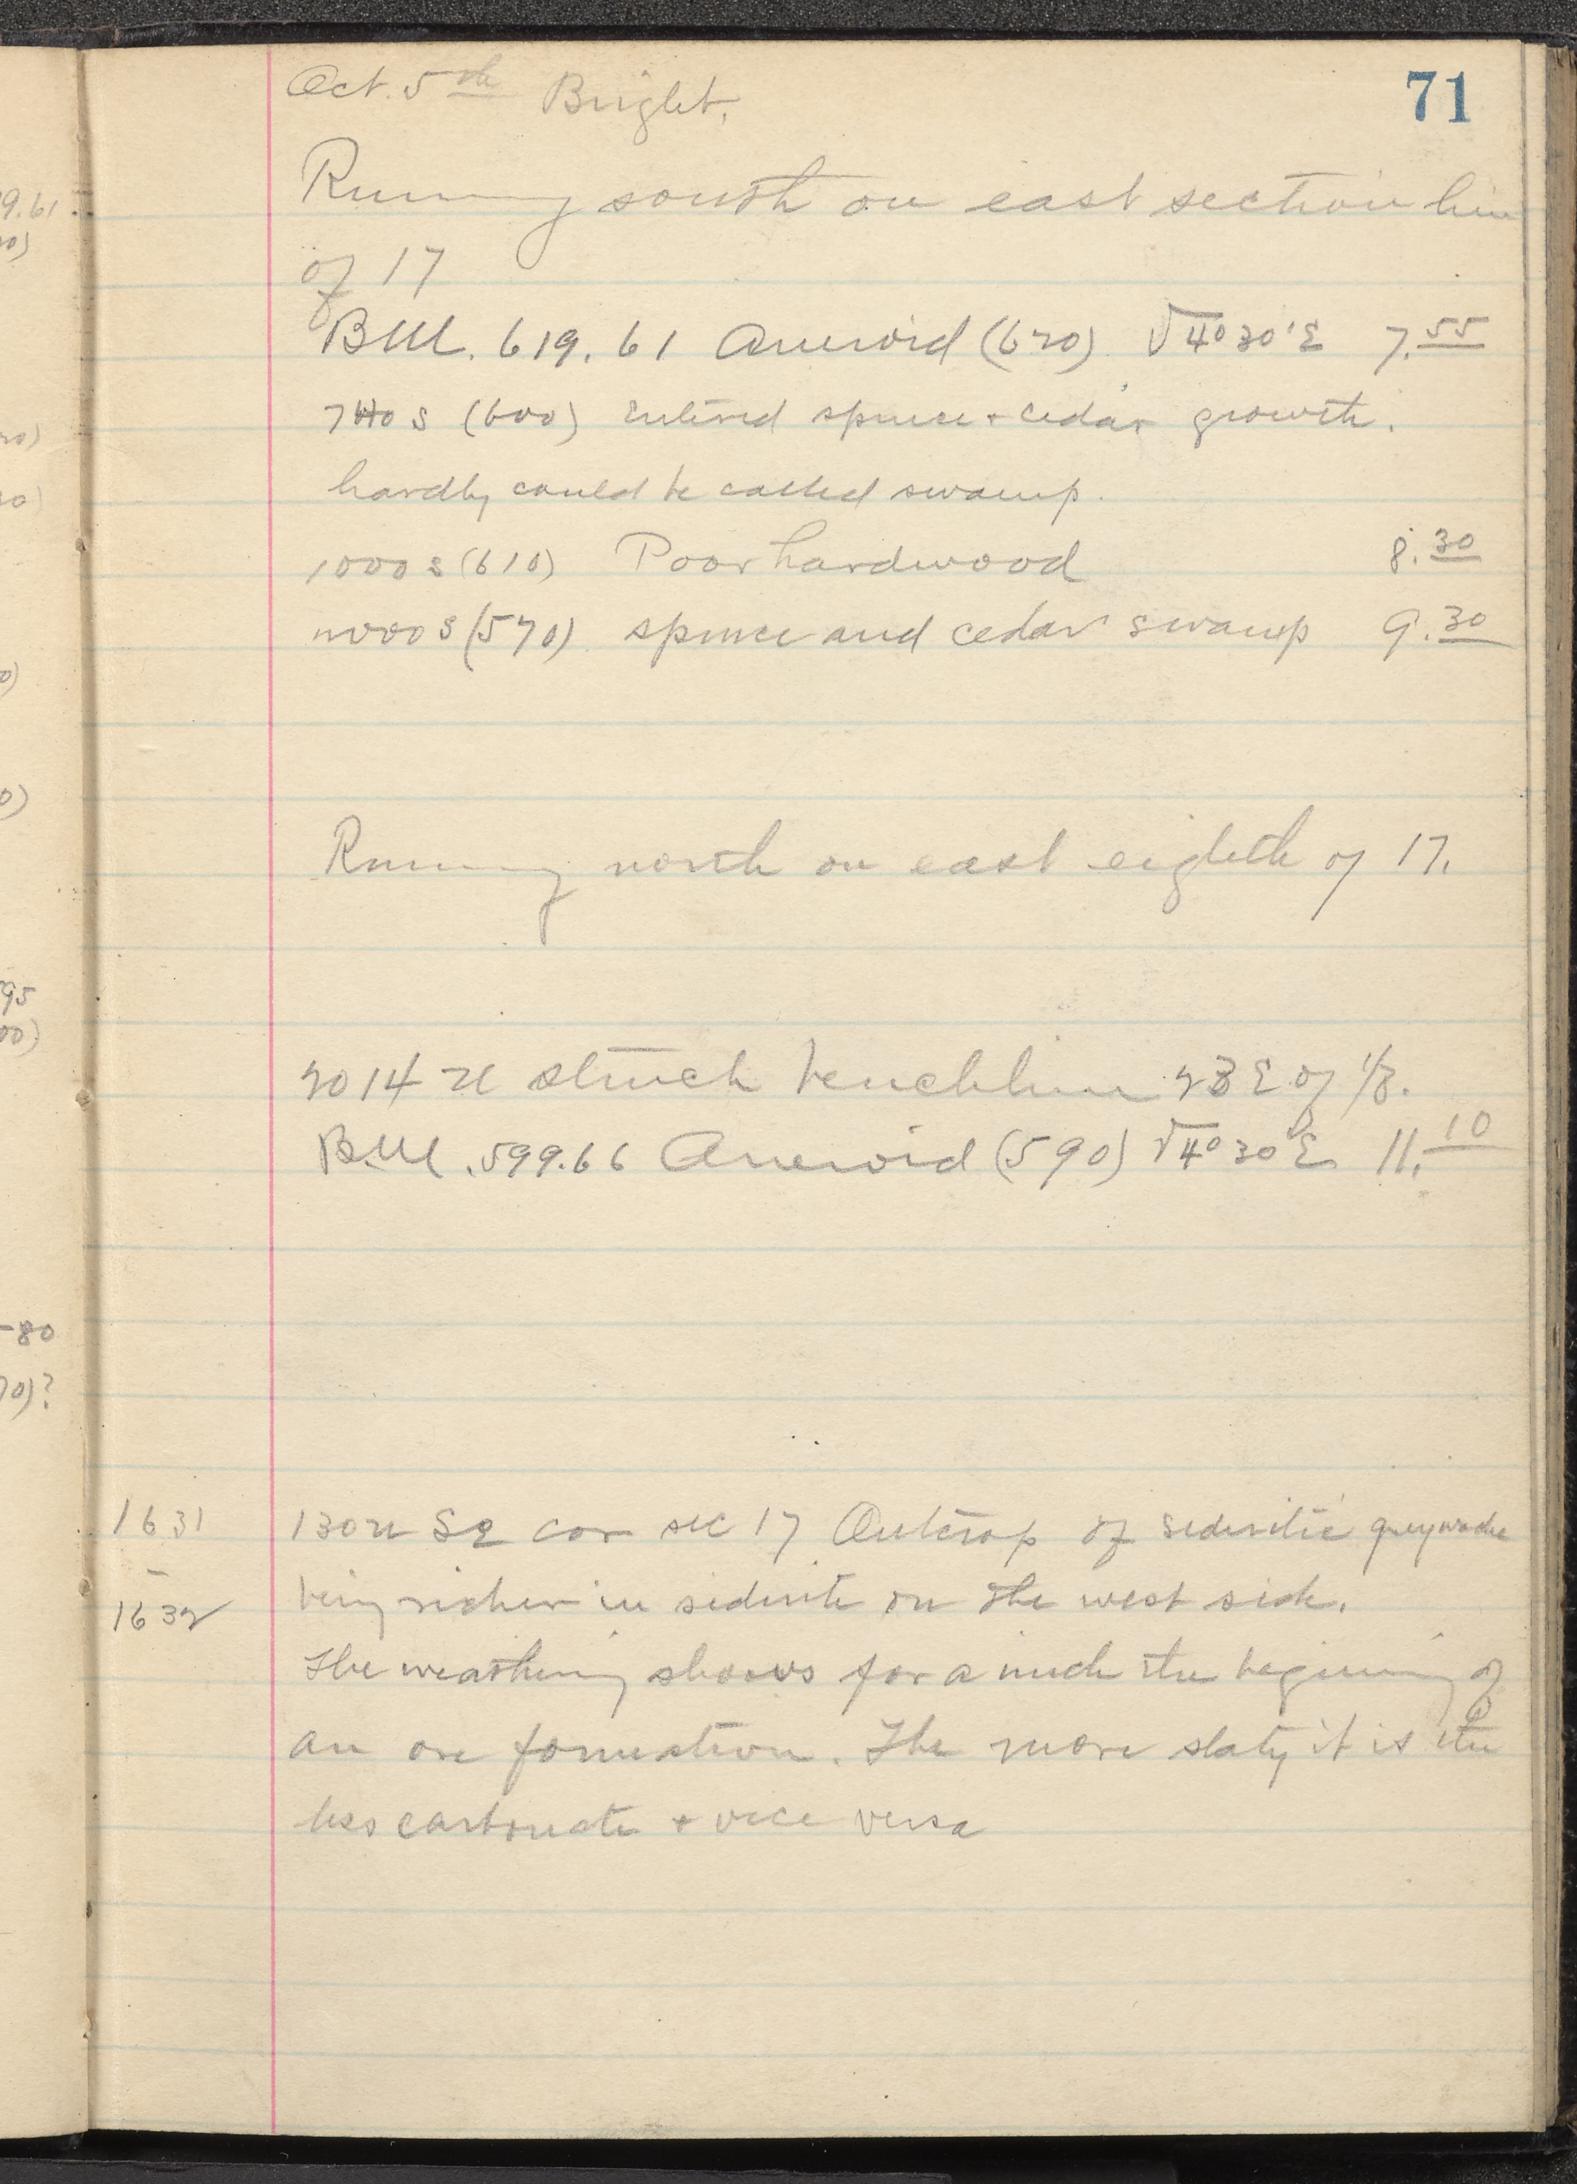 71
Oct. 5th Bright.
Running south on east section line
of 17
B.M. 619.61 Aneroid (620) √4°30'E 7.55
740 S (600) Entered spruce + cedar growth.
hardly could be called swamp.
1000 S (610) Poor hardwood 8.30
2000 S (570) spruce and cedar swamp 9.30
Running north on east eighth of 17.
2014 N struck benchline 23 E of 1/8.
B.M. 599.66 Aneroid (590) √4°30'E 11.10
1631 130 N SE cor sec 17 Outcrop of sideritic greywacke
–
1632 being richer in siderite on the west side.
The weathering shows for a inch the begining of
an ore formation. The more slaty it is the
less carbonate + vice versa
9.61
95
00)
-80
70)?